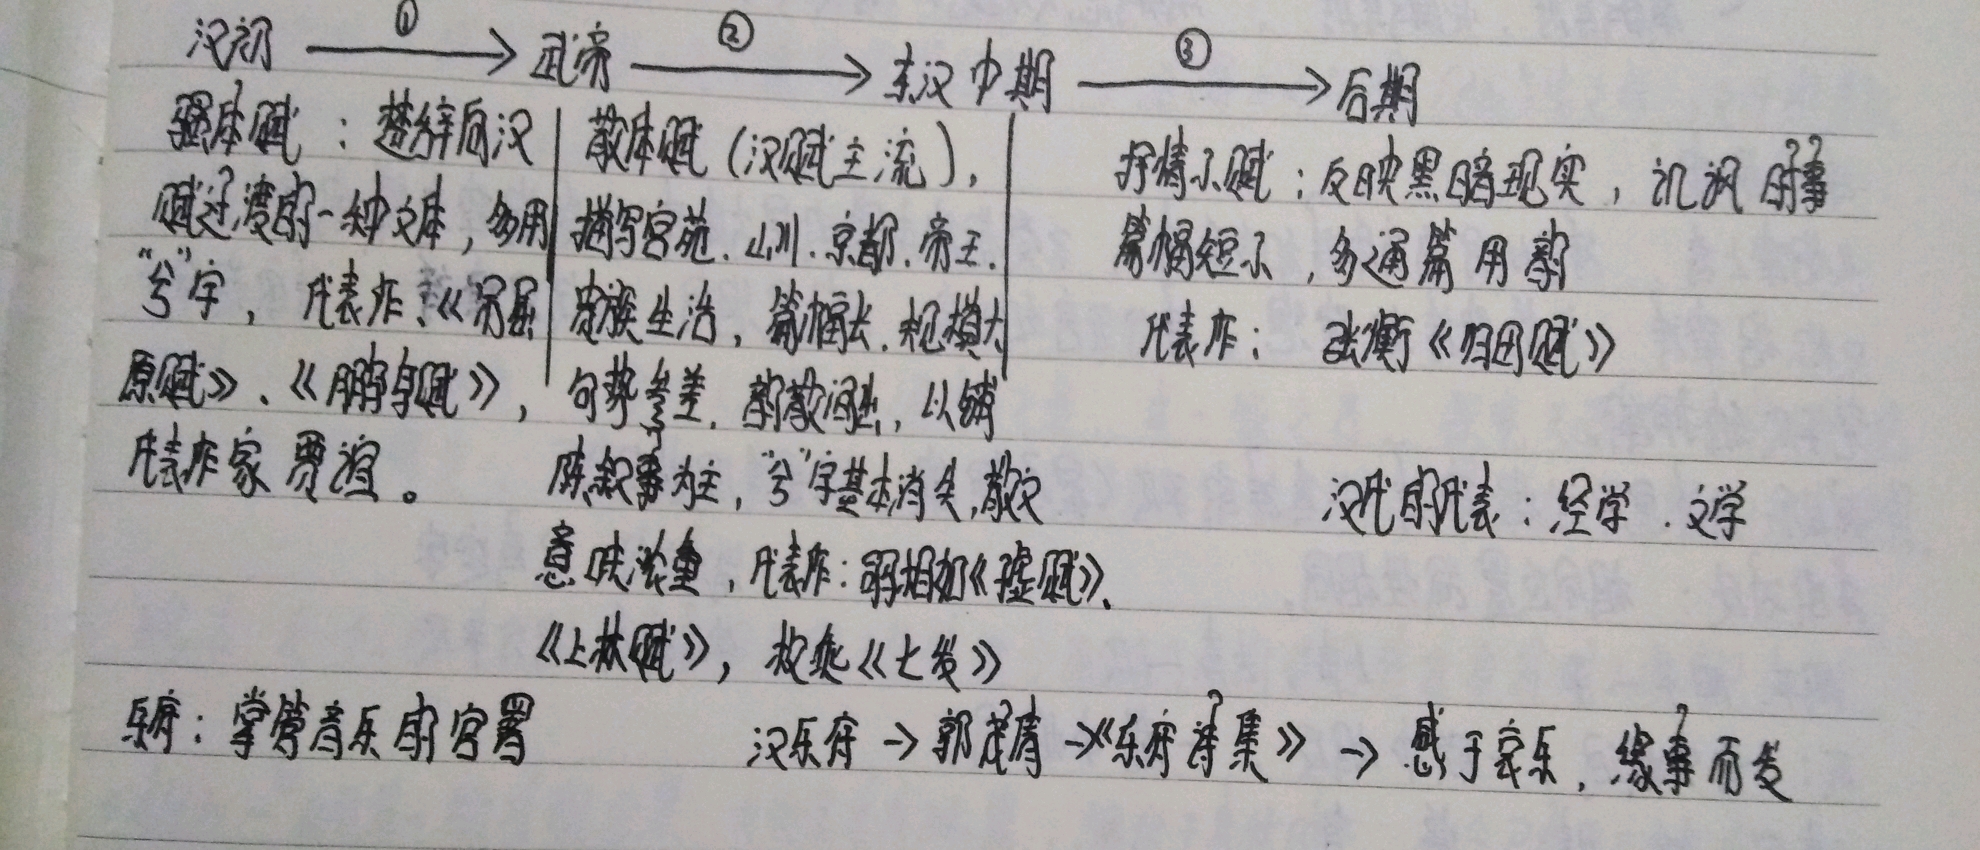 汉初 ① 武帝 ② 东汉中期 ③ 后期
骚体赋：楚辞向汉
赋过渡的一种文体，多用
“兮”字，代表作、《吊屈
原赋》、《鵩鸟赋》，
代表作家贾谊。
散体赋（汉赋主流），
描写宫苑、山川、京都、帝王、
贵族生活，篇幅长、规模大
句势参差、韵散间出，以铺
陈叙事为主，“兮”字基本消失，散文
意味浓重，代表作：司马相如《子虚赋》、
《上林赋》，枚乘《七发》
抒情小赋：反映黑暗现实，讥讽时事
篇幅短小，多通篇用韵
代表作：张衡《归田赋》
汉代的代表：经学、文学
乐府：掌管音乐的官署
汉乐府→郭茂倩→《乐府诗集》→感于哀乐，缘事而发